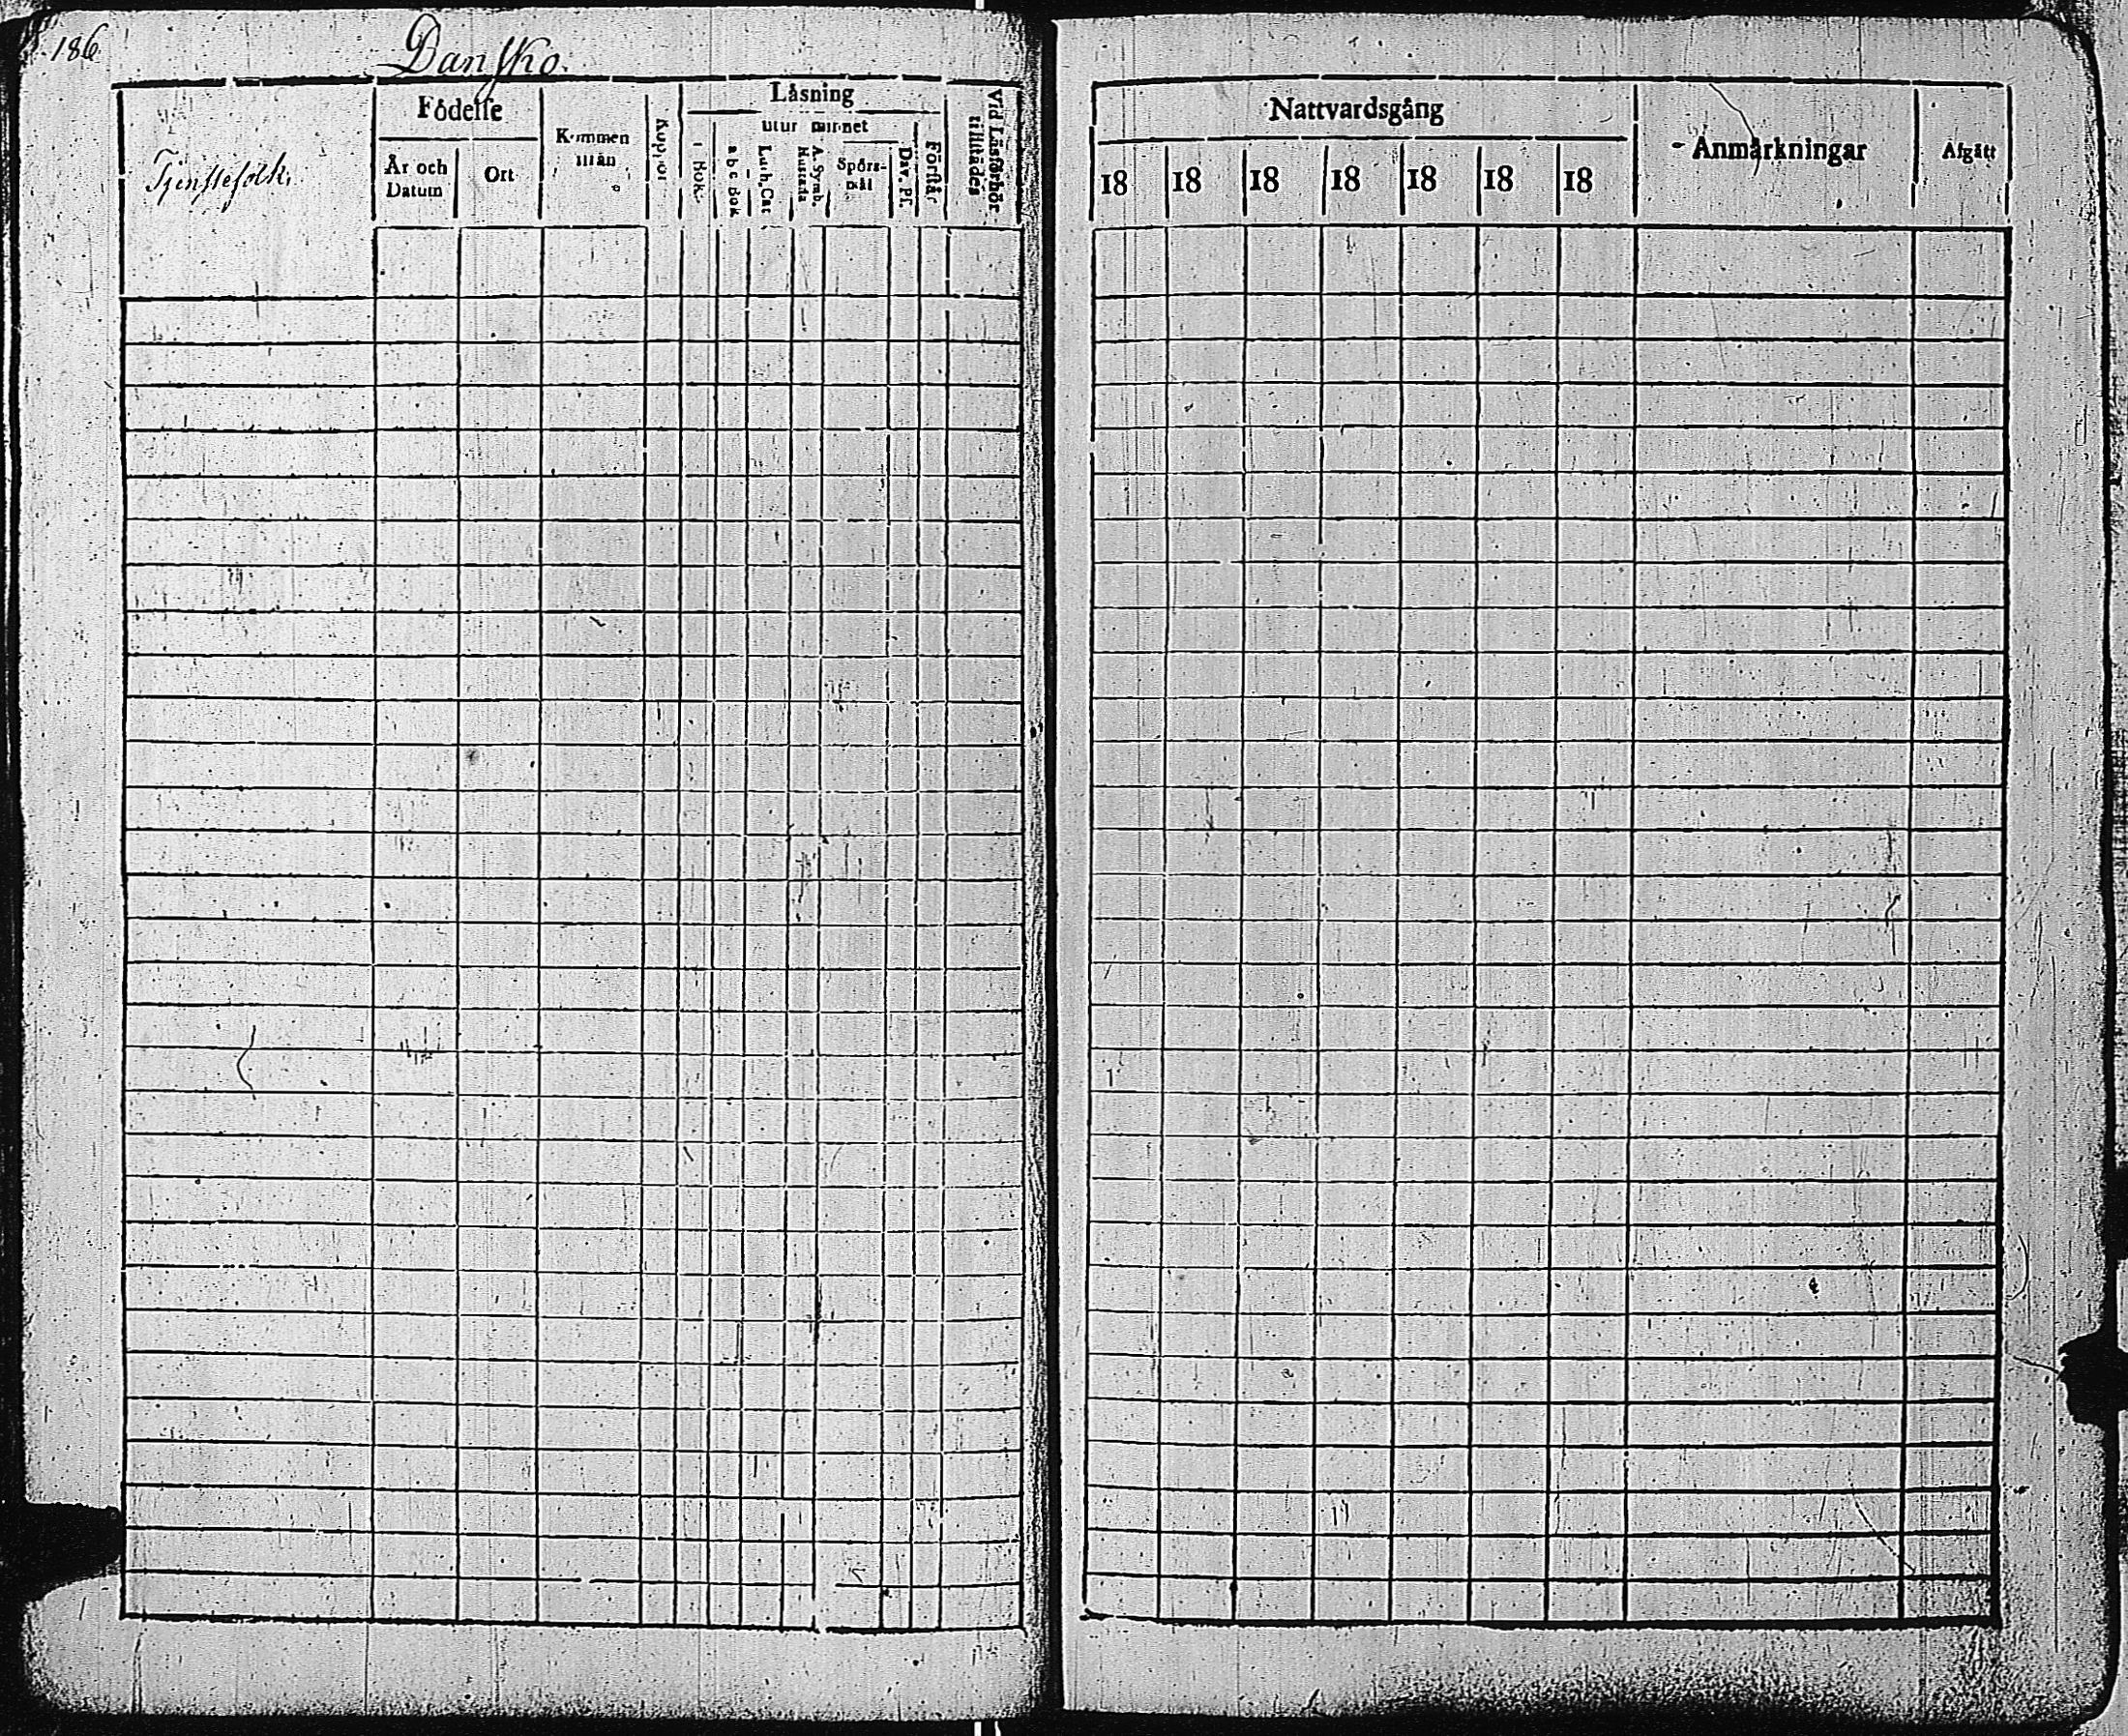 186.
Danſko.
Tjenſtefolk.
Födelſe
År och Datum
Ort
Kommen ifrån
Koppor
Låsning
i Bok
utur minnet
a b c Bok
Luth. Cat
A. Symb. Hustafla
Spörs-mål
Dav. Pſ.
Förſtår
Vid Läsförhör tillſtädes
Nattvardsgång
18
18
18
18
18
18
18
Anmärkningar
Afgått